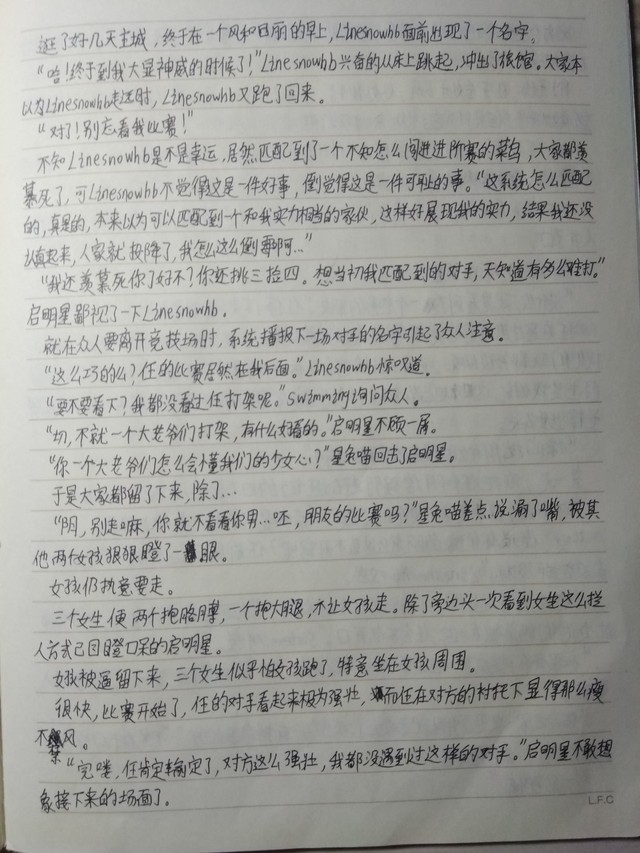 逛了好几天主城，终于在一个风和日丽的早上，Linesnowhb面前出现了一个名字。
“哈！终于到我大显神威的时候了！”Linesnowhb兴奋的从床上跳起，冲出了旅馆。大家本
以为Linesnowhb走远时，Linesnowhb又跑了回来。
“对了！别忘看我比赛！”
不知Linesnowhb是不是幸运，居然匹配到了一个不知怎么闯进进阶赛的菜鸟，大家都羡
慕死了，可Linesnowhb不觉得这是一件好事，倒觉得这是一件可耻的事。“这系统怎么匹配
的，真是的，本来以为可以匹配到一个和我实力相当的家伙，这样好展现我的实力，结果我还没
认真起来，人家就投降了，我怎么这么倒霉啊…”
“我还羡慕死你了好不？你还挑三捡四。想当初我匹配到的对手，天知道有多么难打。”
启明星鄙视了一下Linesnowhb。
就在众人要离开竞技场时，系统播报下一场对手的名字引起了众人注意。
“这么巧的么？任的比赛居然在我后面。”Linesnowhb惊叹道。
“要不要看下？我都没看过任打架呢。”Swimming询问众人。
“切，不就一个大老爷们打架，有什么好看的。”启明星不顾一屑。
“你一个大老爷们怎么会懂我们的少女心？”星兔喵回击了启明星。
于是大家都留了下来，除了…
“阴，别走嘛，你就不看看你男…呸，朋友的比赛吗？”星兔喵差点说漏了嘴，被其
他两个女孩狠狠瞪了一眼。
女孩仍执意要走。
三个女生便两个抱胳膊，一个抱大腿，不让女孩走。除了旁边头一次看到女生这么拦
人方式已目瞪口呆的启明星。
女孩被逼留下来，三个女生似乎怕女孩跑了，特意坐在女孩周围。
很快，比赛开始了，任的对手看起来极为强壮，而任在对方的衬托下显得那么瘦
不禁风。
“完喽，任肯定输定了，对方这么强壮，我都没遇到过这样的对手。”启明星不敢想
象接下来的场面了。
L.F.C